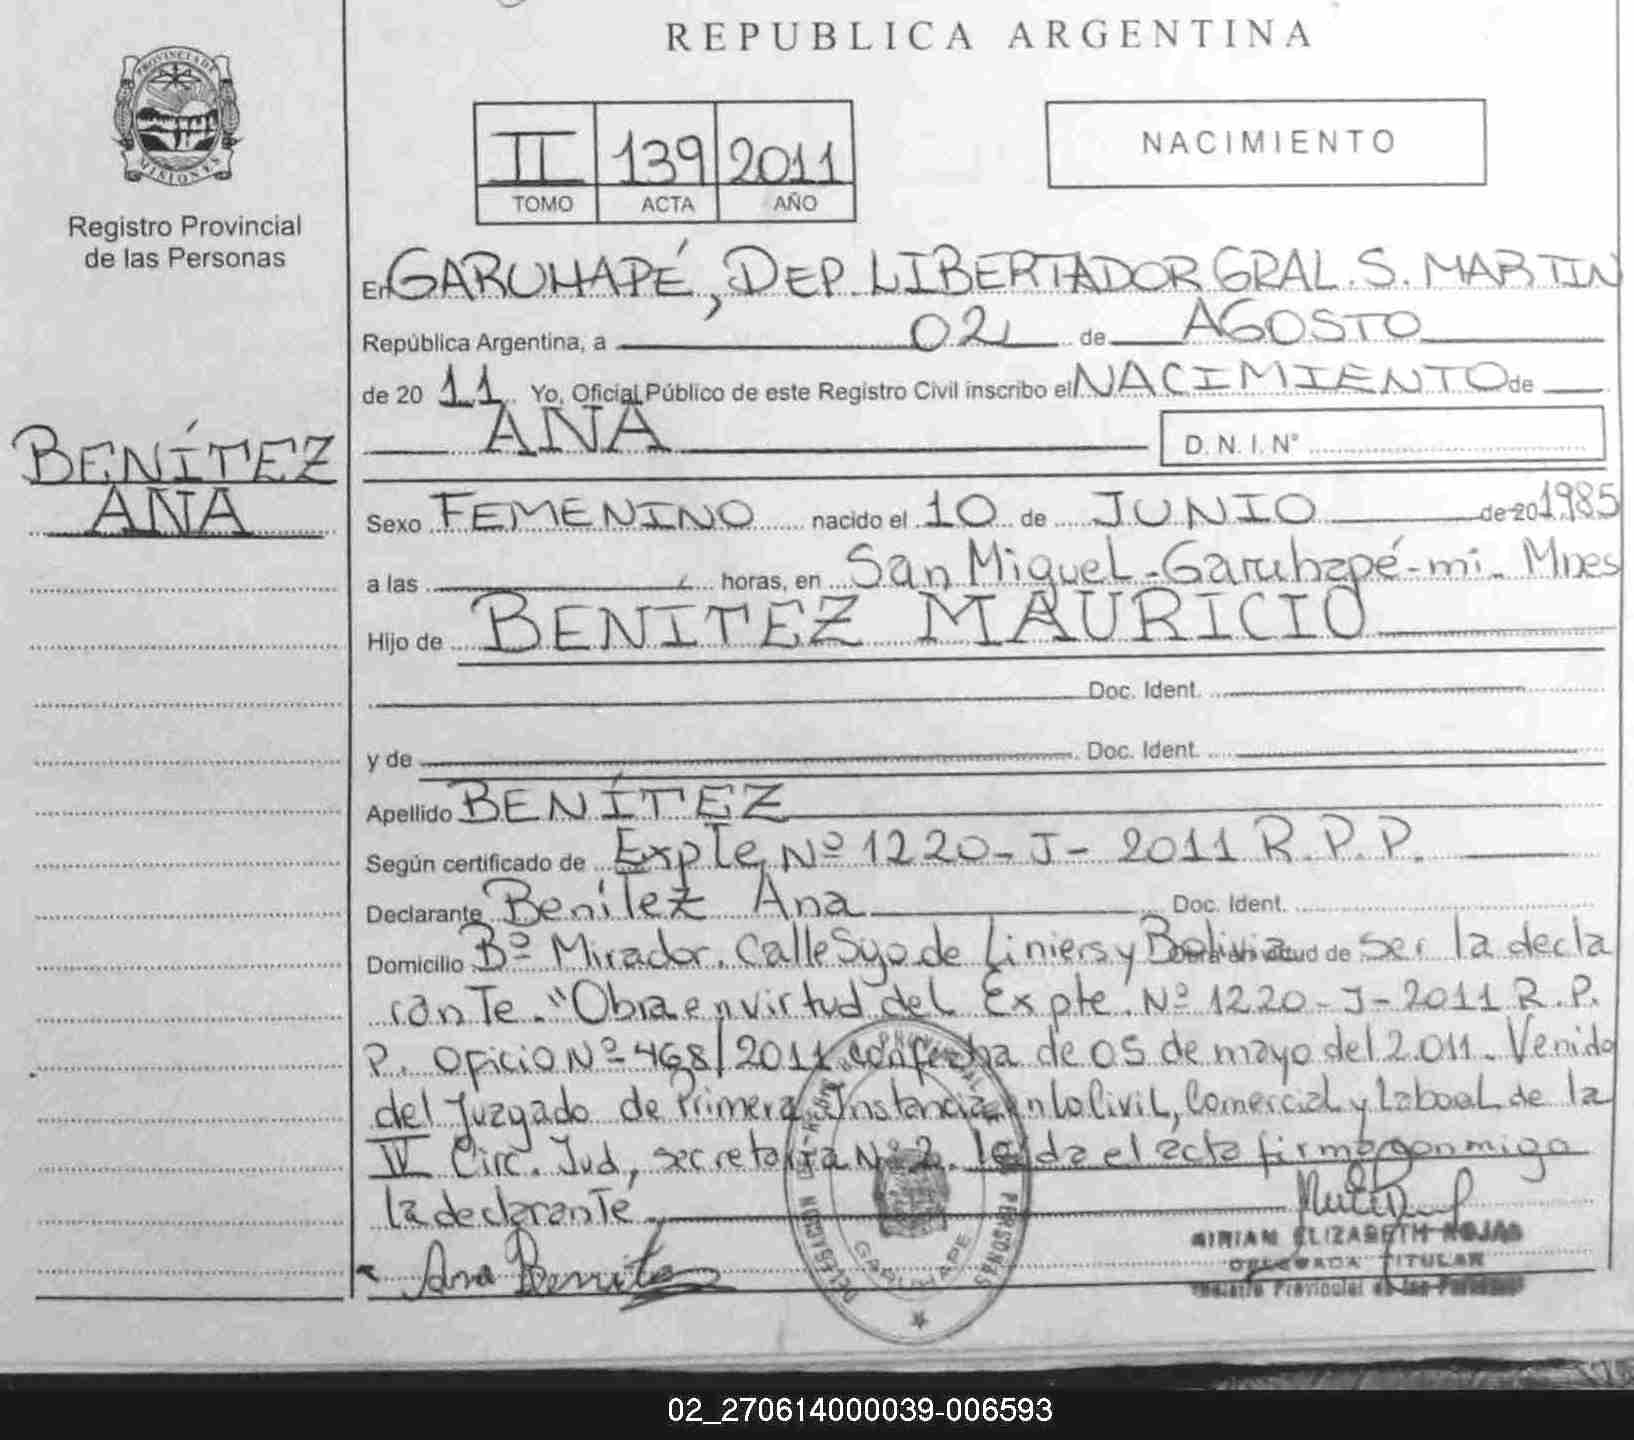 REPUBLICA ARGENTINA
PROVINCIA DE
MISIONES
Registro Provincial
de las Personas
II 139 2011
TOMO ACTA AÑO
NACIMIENTO
BENÍTEZ
ANA
En GARUHAPÉ, DEP. LIBERTADOR GRAL. S. MARTIN
República Argentina, a 02 de AGOSTO
de 20 11 Yo, Oficial Público de este Registro Civil inscribo el NACIMIENTO de
ANA D. N. I. N°
Sexo FEMENINO nacido el 10 de JUNIO de 20 1985
a las horas, en San Miguel - Garuhapé-mi. Mnes
Hijo de BENITEZ MAURICIO
Doc. Ident.
y de Doc. Ident.
Apellido BENÍTEZ
Según certificado de Expte Nº 1220-J-2011 R.P.P.
Declarante Benítez Ana Doc. Ident.
Domicilio Bº Mirador. Calle Sgo de Liniers y Bolivia de ser la decla
rante. "Obra en virtud del Expte. Nº 1220-J-2011 R.P.
P. Oficio Nº 468/2011 con fecha de 05 de mayo del 2.011. Venido
del Juzgado de Primera Instancia en lo Civil, Comercial y Laboal de la
IV Circ. Jud, secretaria Nº 2. leída el acta firma conmigo
la declarante
Ana Benitez
DELEGACION
PROVINCIAL
PERSONAS
GARUHAPE
MIRIAN ELIZABETH ROJAS
DELEGADA TITULAR
Registro Provincial de las Personas
02_270614000039-006593